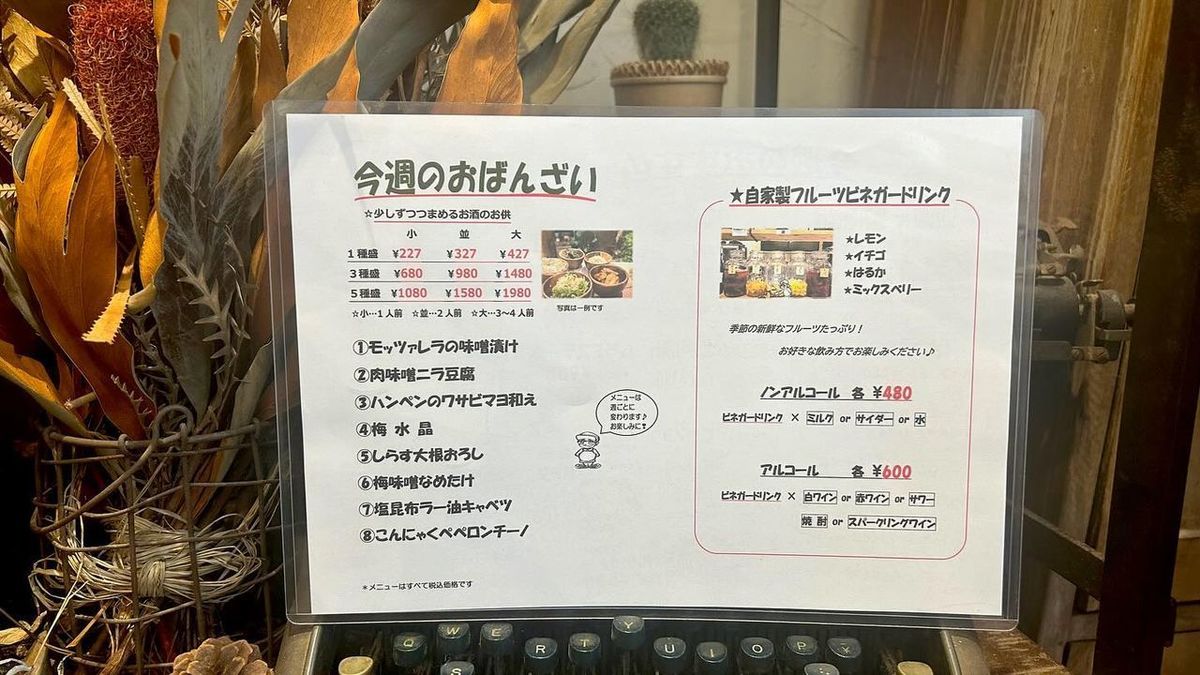 今週のおばんざい
☆少しずつつまめるお酒のお供
小 並 大
1種盛 ¥227 ¥327 ¥427
3種盛 ¥680 ¥980 ¥1480
5種盛 ¥1080 ¥1580 ¥1980
☆小…1人前 ☆並…2人前 ☆大…3~4人前
写真は一例です
①モッツァレラの味噌漬け
②肉味噌ニラ豆腐
③ハンペンのワサビマヨ和え
④梅水晶
⑤しらす大根おろし
⑥梅味噌なめたけ
⑦塩昆布ラー油キャベツ
⑧こんにゃくペペロンチーノ
メニューは
週ごとに
変わります♪
お楽しみに!
*メニューはすべて税込価格です
★自家製フルーツビネガードリンク
★レモン
★イチゴ
★はるか
★ミックスベリー
季節の新鮮なフルーツたっぷり!
お好きな飲み方でお楽しみください♪
ノンアルコール 各 ¥480
ビネガードリンク × ミルク or サイダー or 水
アルコール 各 ¥600
ビネガードリンク × 白ワイン or 赤ワイン or サワー
焼酎 or スパークリングワイン
Q W E T Y
R U I O P
S